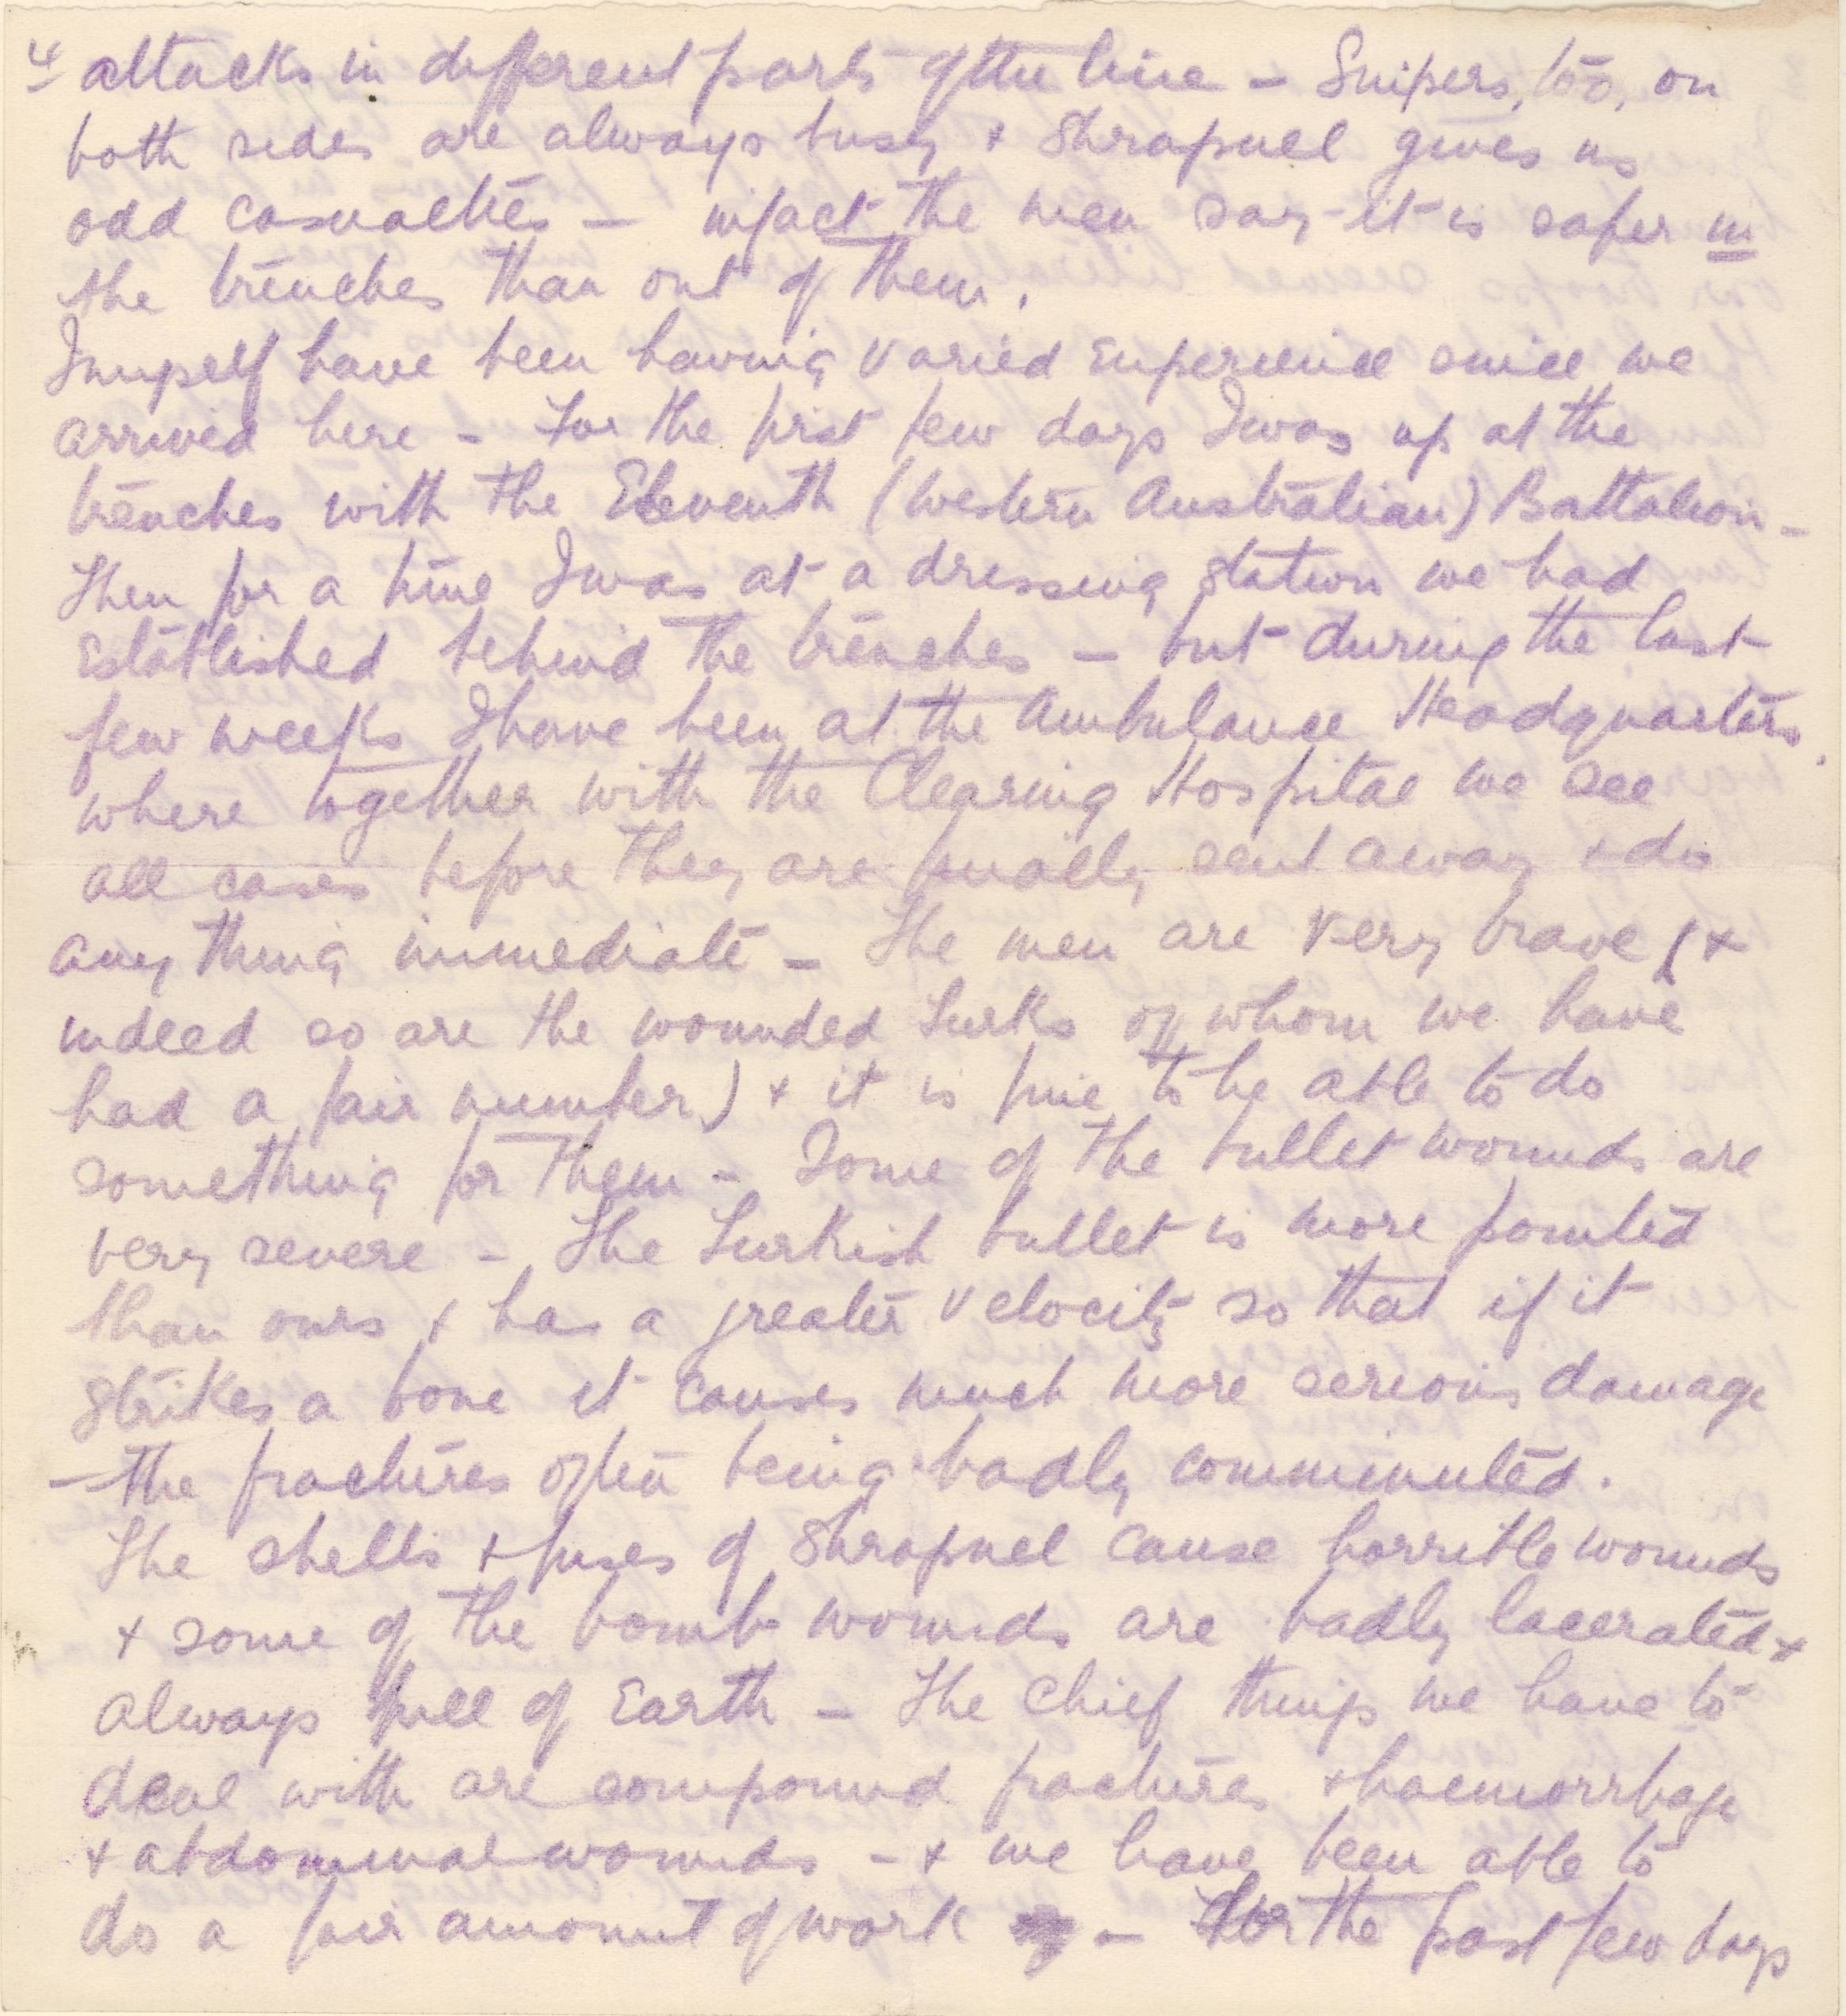 4 attacks in different parts of the line - Snipers, too, on
both sides are always busy + Shrapnel gives us
odd casualties - in fact the men say it is safer in
the trenches than out of them.
I myself have been having varied experience since we
arrived here - For the first few days I was up at the
trenches with the Eleventh (Western Australian) Battalion -
Then for a time I was at a dressing station we had
established behind the trenches - but during the last
few weeks I have been at the Ambulance Headquarters,
where together with the Clearing Hospital we see
all cases before they are finally sent away + do
any thing immediate - The men are very brave (+
indeed so are the wounded Turks of whom we have
had a fair number) + it is fine to be able to do
something for them - Some of the bullet wounds are
very severe - The Turkish bullet is more pointed
than ours + has a greater velocity so that if it
strikes a bone it causes much more serious damage
- the fractures often being badly comminuted.
The shells + fuses of Shrapnel cause horrible wounds
+ some of the bomb wounds are badly lacerated +
always full of Earth - The chief things we have to
deal with are compound fractures + haemorrhage
+ abdominal wounds - + we have been able to
do a fair amount of work - For the past few days